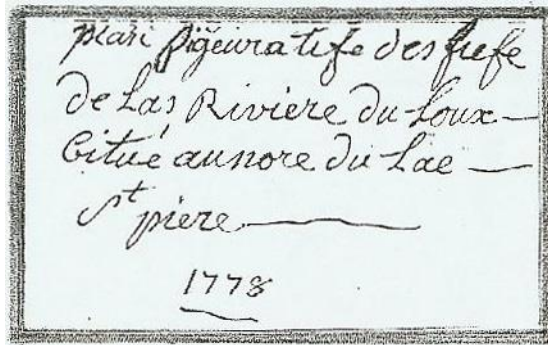 plan figeuratife des fiefe
de Las Riviere du Loux —
Citué aunore du Lac —
St piere —
1778